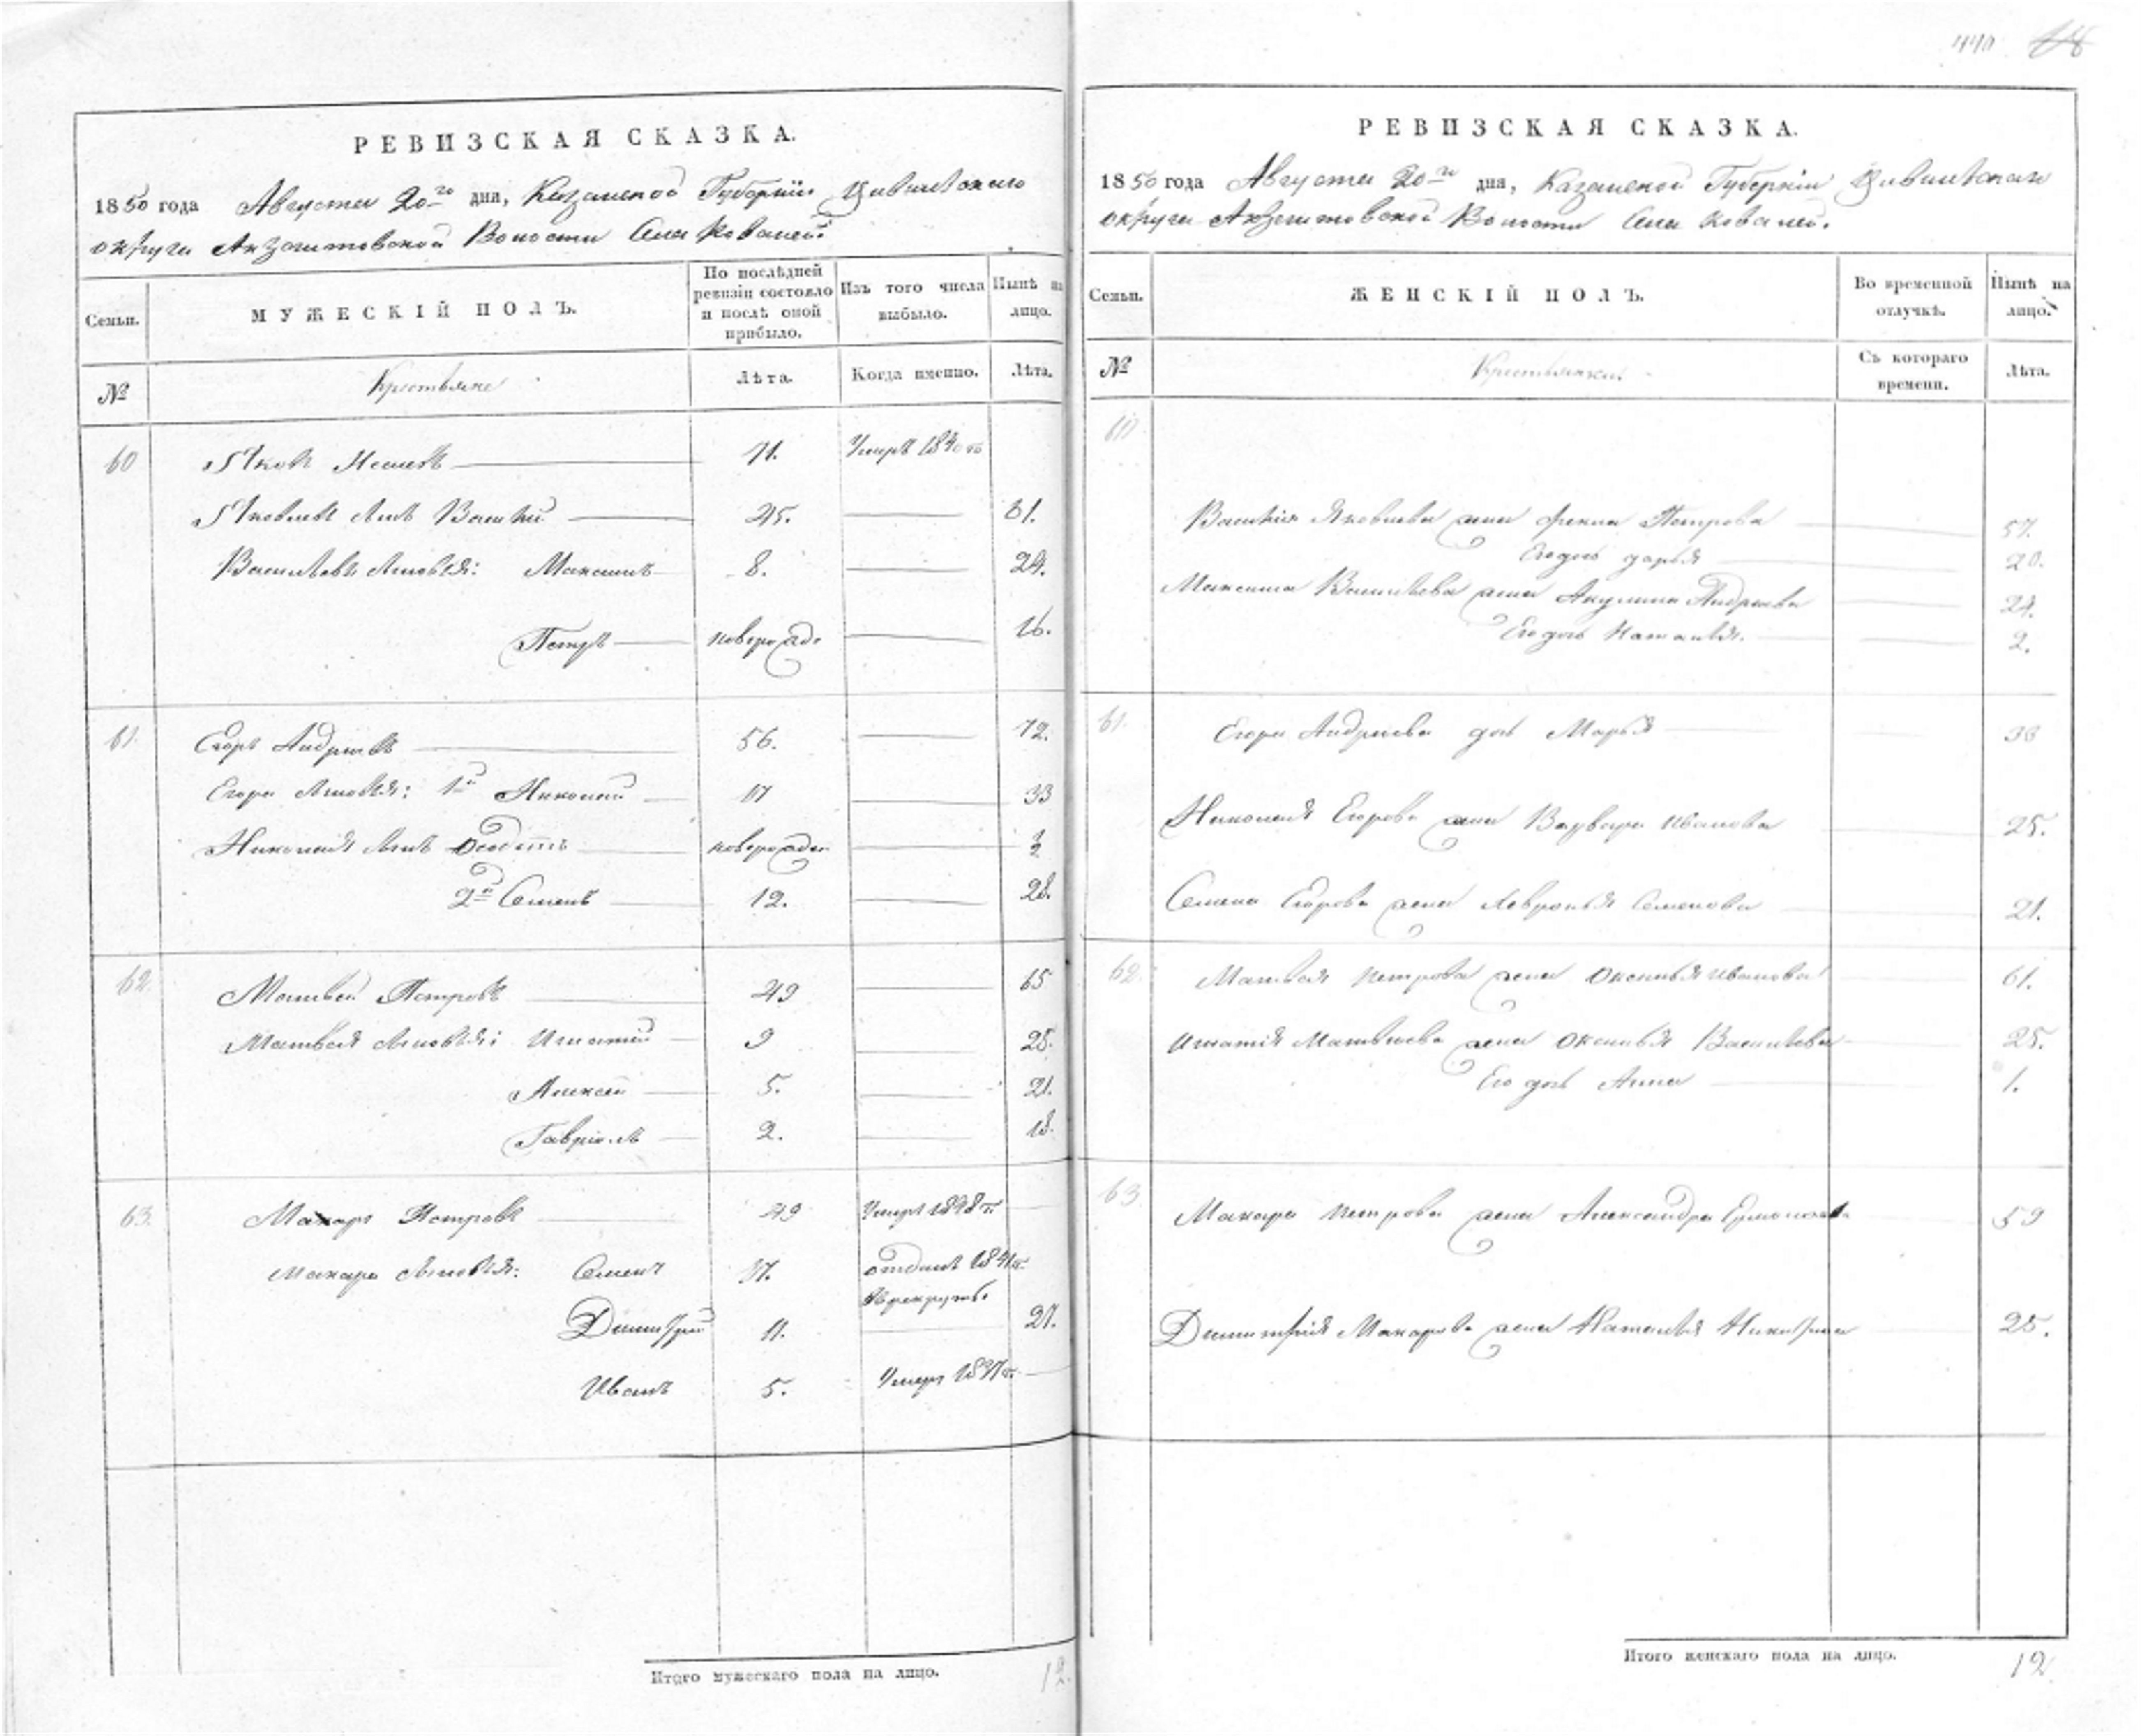 440 68
РЕВИЗСКАЯ СКАЗКА.
1850 года Августа 20го дня, Казанской Губернiи Цивильскаго
округа Акзегитовской Волости Села Ковалей.
Семьи.
МУЖЕСКІЙ ПОЛЪ.
По послѣдней ревизіи состояло и послѣ оной прибыло.
Изъ того числа выбыло.
Нынѣ на лицо.
№
Крестьяне
Лѣта.
Когда именно.
Лѣта.
60
Яковъ 71. Умеръ 1840 г.
Яковлевъ сынъ Василiй 45. 61.
Васильевы сыновья: Максимъ 8. 24.
Петръ новорожде 16.
61.
Егоръ Андреевъ 56. 72.
Егора сыновья: 1й Николай 17 33
Николая сынъ новорожден
2й Семенъ 12. 28.
62.
Матвей Петровъ 49 65
Матвея сыновья: Игнатiй 9 25.
Алексей 5. 21.
Гаврiилъ 2. 18.
63.
Макаръ Петровъ 49 Умеръ 1848 г.
Макара сыновья: Семенъ 17. отданъ 1841 г.
в рекруты
Димитрiй 11. 27.
Иванъ 5. Умеръ 1837 г.
Итого мужескаго пола на лицо. 12.
РЕВИЗСКАЯ СКАЗКА.
1850 года Августа 20го дня, Казанской Губернiи Цивильскаго
округа Акзегитовской Волости Села Ковалей.
Семьи.
ЖЕНСКІЙ ПОЛЪ.
Во временной отлучкѣ.
Нынѣ на лицо.
№
Крестьянки.
Съ котораго времени.
Лѣта.
60.
Василiя Яковлева жена Фекла Петрова 57.
Его дочь Дарья 20.
Максима Васильева жена Акулина Андреева 24.
Его дочь Наталья. 2.
61.
Егора Андреева дочь Марья 30
Николая Егорова жена Варвара Иванова 25.
Семена Егорова жена Хевронья Семенова 21.
62.
Матвея Петрова жена Оксинья Иванова 61.
Игнатiя Матвеева жена Оксинья Васильева 25.
Его дочь Анна 1.
63
Макара Петрова жена Александра Ермолаева 59
Димитрiя Макарова жена Наталья Никитина 25.
Итого женскаго пола на лицо. 12